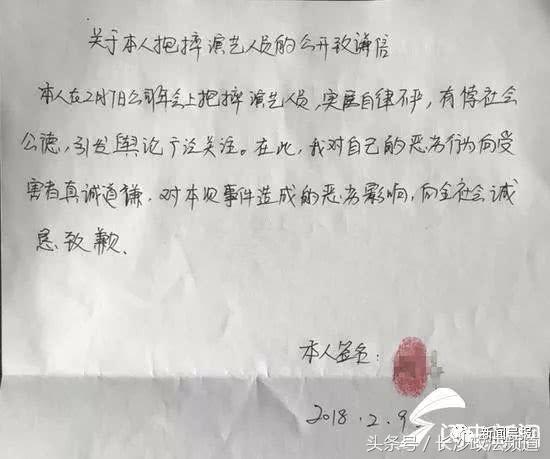 关于本人抱摔演艺人员的公开致谦信
本人在2月7日公司年会上抱摔演艺人员,实属自律不严,有悖社会
公德,引发舆论广泛关注。在此,我对自己的恶劣行为向受
害者真诚道谦,对本次事件造成的恶劣影响,向全社会诚
恳致歉.
本人签名:
2018.2.9
头条号/长沙政法频道